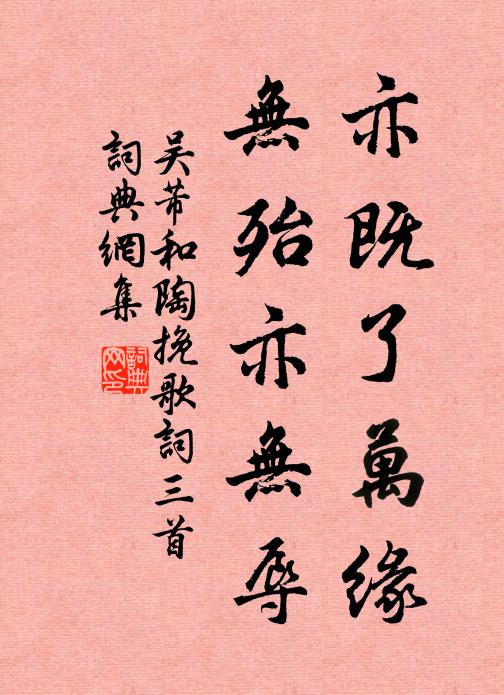 亦既了萬緣
無殆亦無辱
吴芾和陶挽歌詞三首
詞典網集
詞典網印